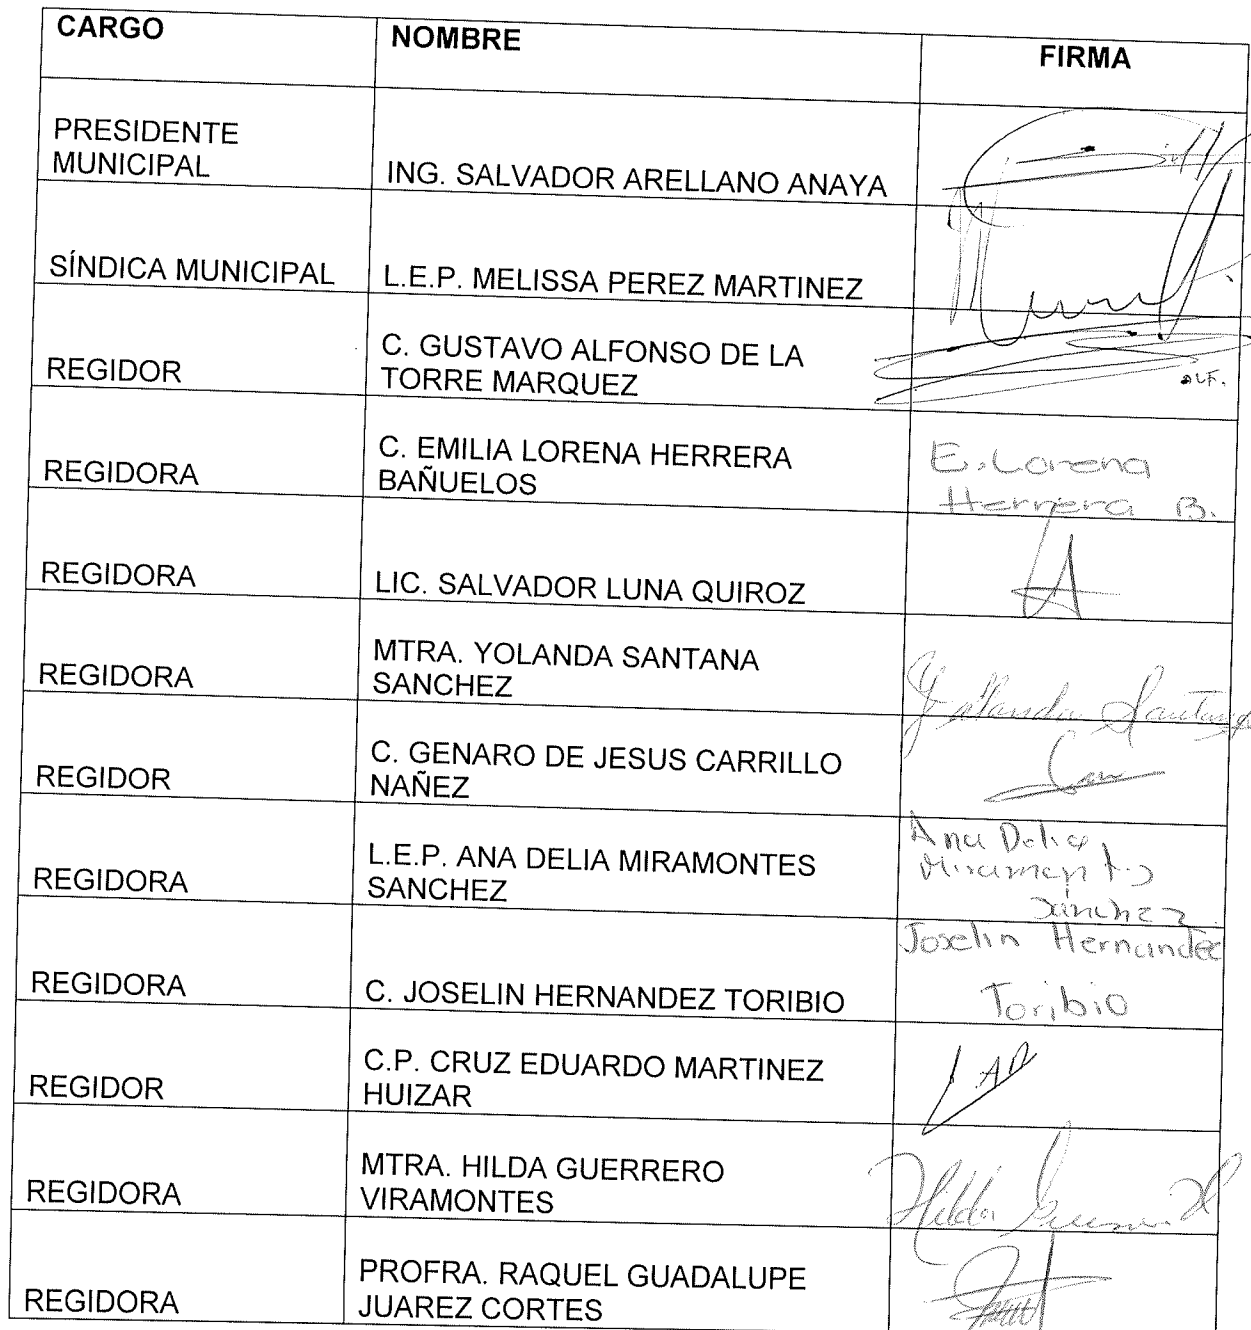 CARGO NOMBRE FIRMA
PRESIDENTE
MUNICIPAL ING. SALVADOR ARELLANO ANAYA
SÍNDICA MUNICIPAL L.E.P. MELISSA PEREZ MARTINEZ
REGIDOR C. GUSTAVO ALFONSO DE LA
TORRE MARQUEZ
REGIDORA C. EMILIA LORENA HERRERA
BAÑUELOS
E. Lorena
Herrera B.
REGIDORA LIC. SALVADOR LUNA QUIROZ
REGIDORA MTRA. YOLANDA SANTANA
SANCHEZ
Yolanda Santana
REGIDOR C. GENARO DE JESUS CARRILLO
NAÑEZ
REGIDORA L.E.P. ANA DELIA MIRAMONTES
SANCHEZ
Ana Delia
Miramontes
Sánchez
REGIDORA C. JOSELIN HERNANDEZ TORIBIO
Joselin Hernandez
Toribio
REGIDOR C.P. CRUZ EDUARDO MARTINEZ
HUIZAR
REGIDORA MTRA. HILDA GUERRERO
VIRAMONTES
Hilda
REGIDORA PROFRA. RAQUEL GUADALUPE
JUAREZ CORTES